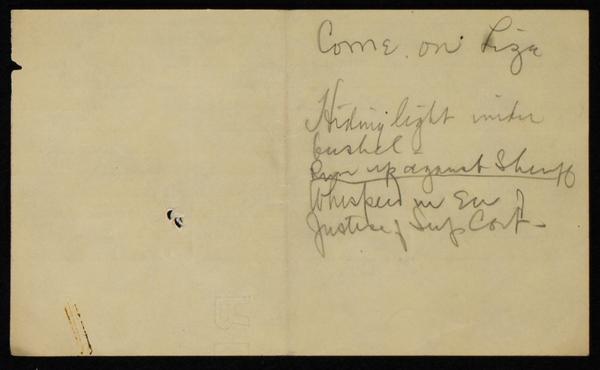 Come on Liza
Hiding light under
bushel -
Run up against Sheriff
Whispers in Ear of
Justice of Sup Cort -